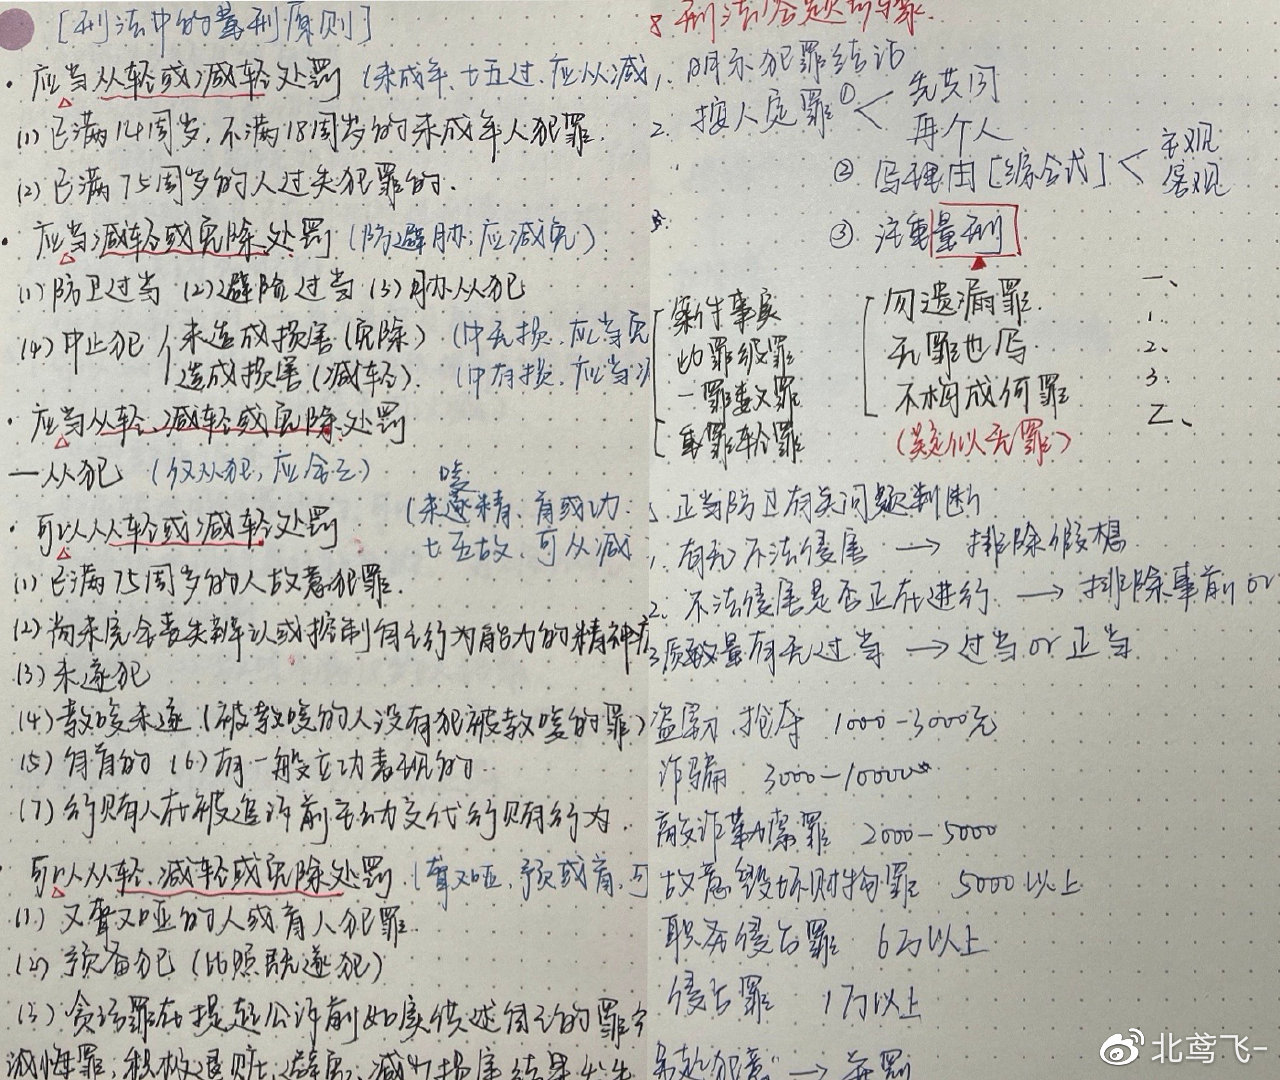 [刑法中的量刑原则]
·应当从轻或减轻处罚(未成年、七五过、应从减
(1)已满14周岁,不满18周岁的未成年人犯罪.
(2)已满75周岁的人过失犯罪的.
·应当减轻或免除处罚(防避胁,应减免)
(1)防卫过当 (2)避险过当 (3)胁从犯
(4)中止犯 未造成损害(免除)(中无损,应当免
造成损害(减轻).(中有损,应当减
·应当从轻、减轻或免除处罚
—从犯 (仅从犯,应全云)
·可以从轻或减轻处罚
唆
(未遂精、首或功.
七五故,可从减
(1)已满75周岁的人故意犯罪.
(2)尚未完全丧失辨认或控制自己行为能力的精神病
(3)未遂犯
(4)教唆未遂(被教唆的人没有犯被教唆的罪)
(5)自首的 (6)有一般立功表现的.
(7)行贿人在被追诉前主动交代行贿行为.
·可以从轻、减轻或免除处罚.(聋又哑,预或盲,可
(1)又聋又哑的人或盲人犯罪.
(2)预备犯(比照既遂犯)
(3)贪污罪在提起公诉前如实供述自己的罪行
诚悔罪,积极退赃,避免、减少损害结果发生
刑法答题
1、明示犯罪结论
2、按人定罪① 先共同
再个人
② 写理由[综合式] 主观
客观
③ 注重量刑
案件事实
此罪彼罪
一罪数罪
重罪轻罪
勿遗漏罪.
无罪也写
不构成何罪
(疑似无罪)
一、
1.
2、
3.
二、
正当防卫有关问题判断
1、有无不法侵害 → 排除假想
2、不法侵害是否正在进行. → 排除事前or
3质数量有无过当 → 过当or正当
盗窃、抢夺 1000-3000元
诈骗 3000-10000
敲诈勒索罪 2000-5000
故意毁坏财物罪 5000以上
职务侵占罪 6万以上
侵占罪 1万以上
→ 无罪
北鸢飞-